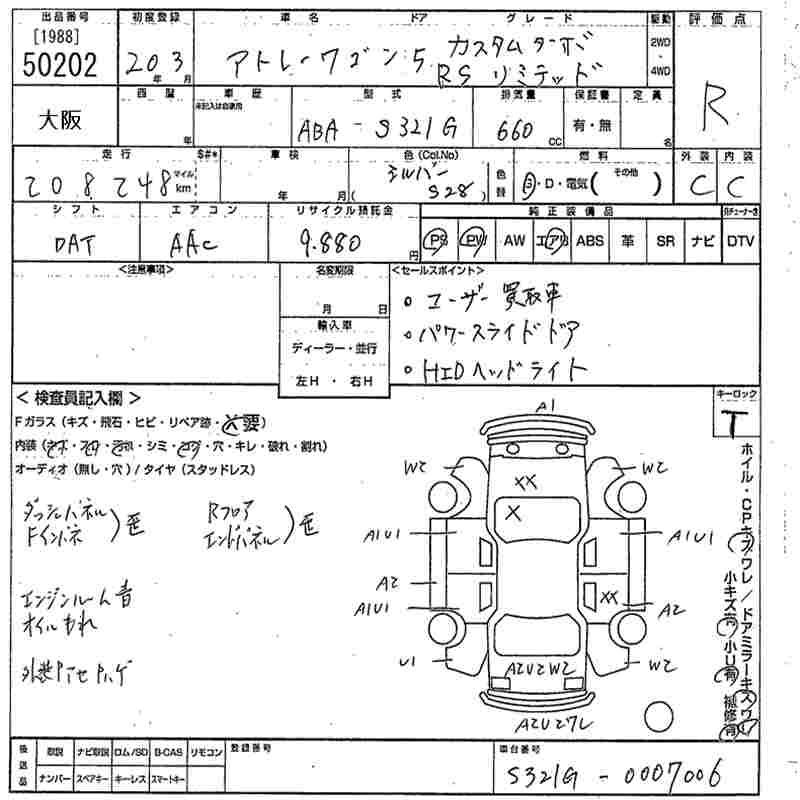 出品番号 初度登録 車名 ドア グレード 駆動 評価点
[1988]
50202 20年 3月 アトレーワゴン 5 カスタムターボ RSリミテッド 2WD・4WD R
大阪 西暦 年 車歴 未記入は自家用 型式 ABA-S321G 排気量 660cc 保証書 有・無 定員 名
走行 $#* 車検 色(Col.No) 燃料 外装 内装
208,248 マイル km 年 月 シルバー (S28) 色替 G・D・電気(その他) C C
シフト エアコン リサイクル預託金 純正装備品
DAT AAC 9.880円 PS PW AW エアB ABS 革 SR ナビ DTV
<注意事項> 名変期限 <セールスポイント>
月 日 ・ユーザー買取車
輸入車 ・パワースライドドア
ディーラー・並行 ・HIDヘッドライト
左H・右H
<検査員記入欄> キーロック
T
Fガラス(キズ・飛石・ヒビ・リペア跡・X要)
内装(キズ・スレ・汚れ・シミ・コゲ・穴・キレ・破れ・割れ)
オーディオ(無し・穴)/タイヤ(スタッドレス)
ダッシュパネル Fインパネ)歪 Rフロア エンドパネル)歪
エンジンルーム音
オイルもれ
外装アセハゲ
A1
W2 W2
XX
X
A1U1 A1U1
A2 XX A2
A1U1
U1 A2U2W2 W2
A2U2ワレ
ホイル・CPキズワレ/ドアミラーキズワレ
小キズ有 小U有 補修有
後送品 取説 ナビ取説 ロム/SD B-CAS リモコン 登録番号 車台番号
ナンバー スペアキー キーレス スマートキー S321G-0007006